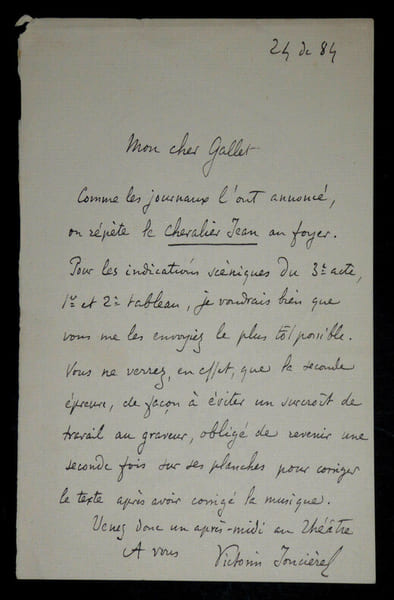 24 de 84
Mon cher Gallet
Comme les journaux l'ont annoncé,
on répète le Chevalier Jean au foyer.
Pour les indications scéniques du 3e acte,
1er et 2e tableau, je voudrais bien que
vous me les envoyiez le plus tôt possible.
Vous ne verrez, en effet, que la seconde
épreuve, de façon à éviter un surcroît de
travail au graveur, obligé de revenir une
seconde fois sur ses planches pour corriger
le texte après avoir corrigé la musique.
Venez donc un après-midi au Théâtre
A vous Victorin Joncières